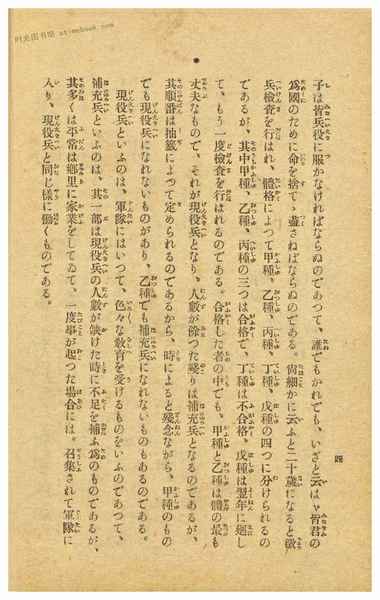 时光图书馆 at-onebook.com
四
子は皆兵役に服かなければならぬのであつて、誰でもかれでも、いざと云はゞ皆君の
爲國のために命を捨てゝ盡さねばならぬのである。尙細かに云ふと二十歳になると徴
兵檢査を行はれ、體格によつて甲種、乙種、丙種、丁種、戊種の四つに分けられるの
であるが、其中甲種、乙種、丙種の三つは合格で、丁種は不合格、戊種は翌年に廻し
て、もう一度檢査を行はれるのである。合格した者の中でも、甲種と乙種は體の最も
丈夫なもので、それが現役兵となり、人數が餘つた殘りは補充兵となるのであるが、
其順番は抽籤によつて定められるのであるから、時によると殘念ながら、甲種のもの
でも現役兵になれないものがあり、乙種でも補充兵になれないものもあるのである。
現役兵といふのは、軍隊にはいつて、色々な敎育を受けるものをいふのであつて、
補充兵といふのは、其一部は現役兵の人數が缺けた時に不足を補ふ爲のものであるが、
其多くは平常は鄕里に家業をしてゐて、一度事が起つた場合には。召集されて軍隊に
入り、現役兵と同じ樣に働くものである。